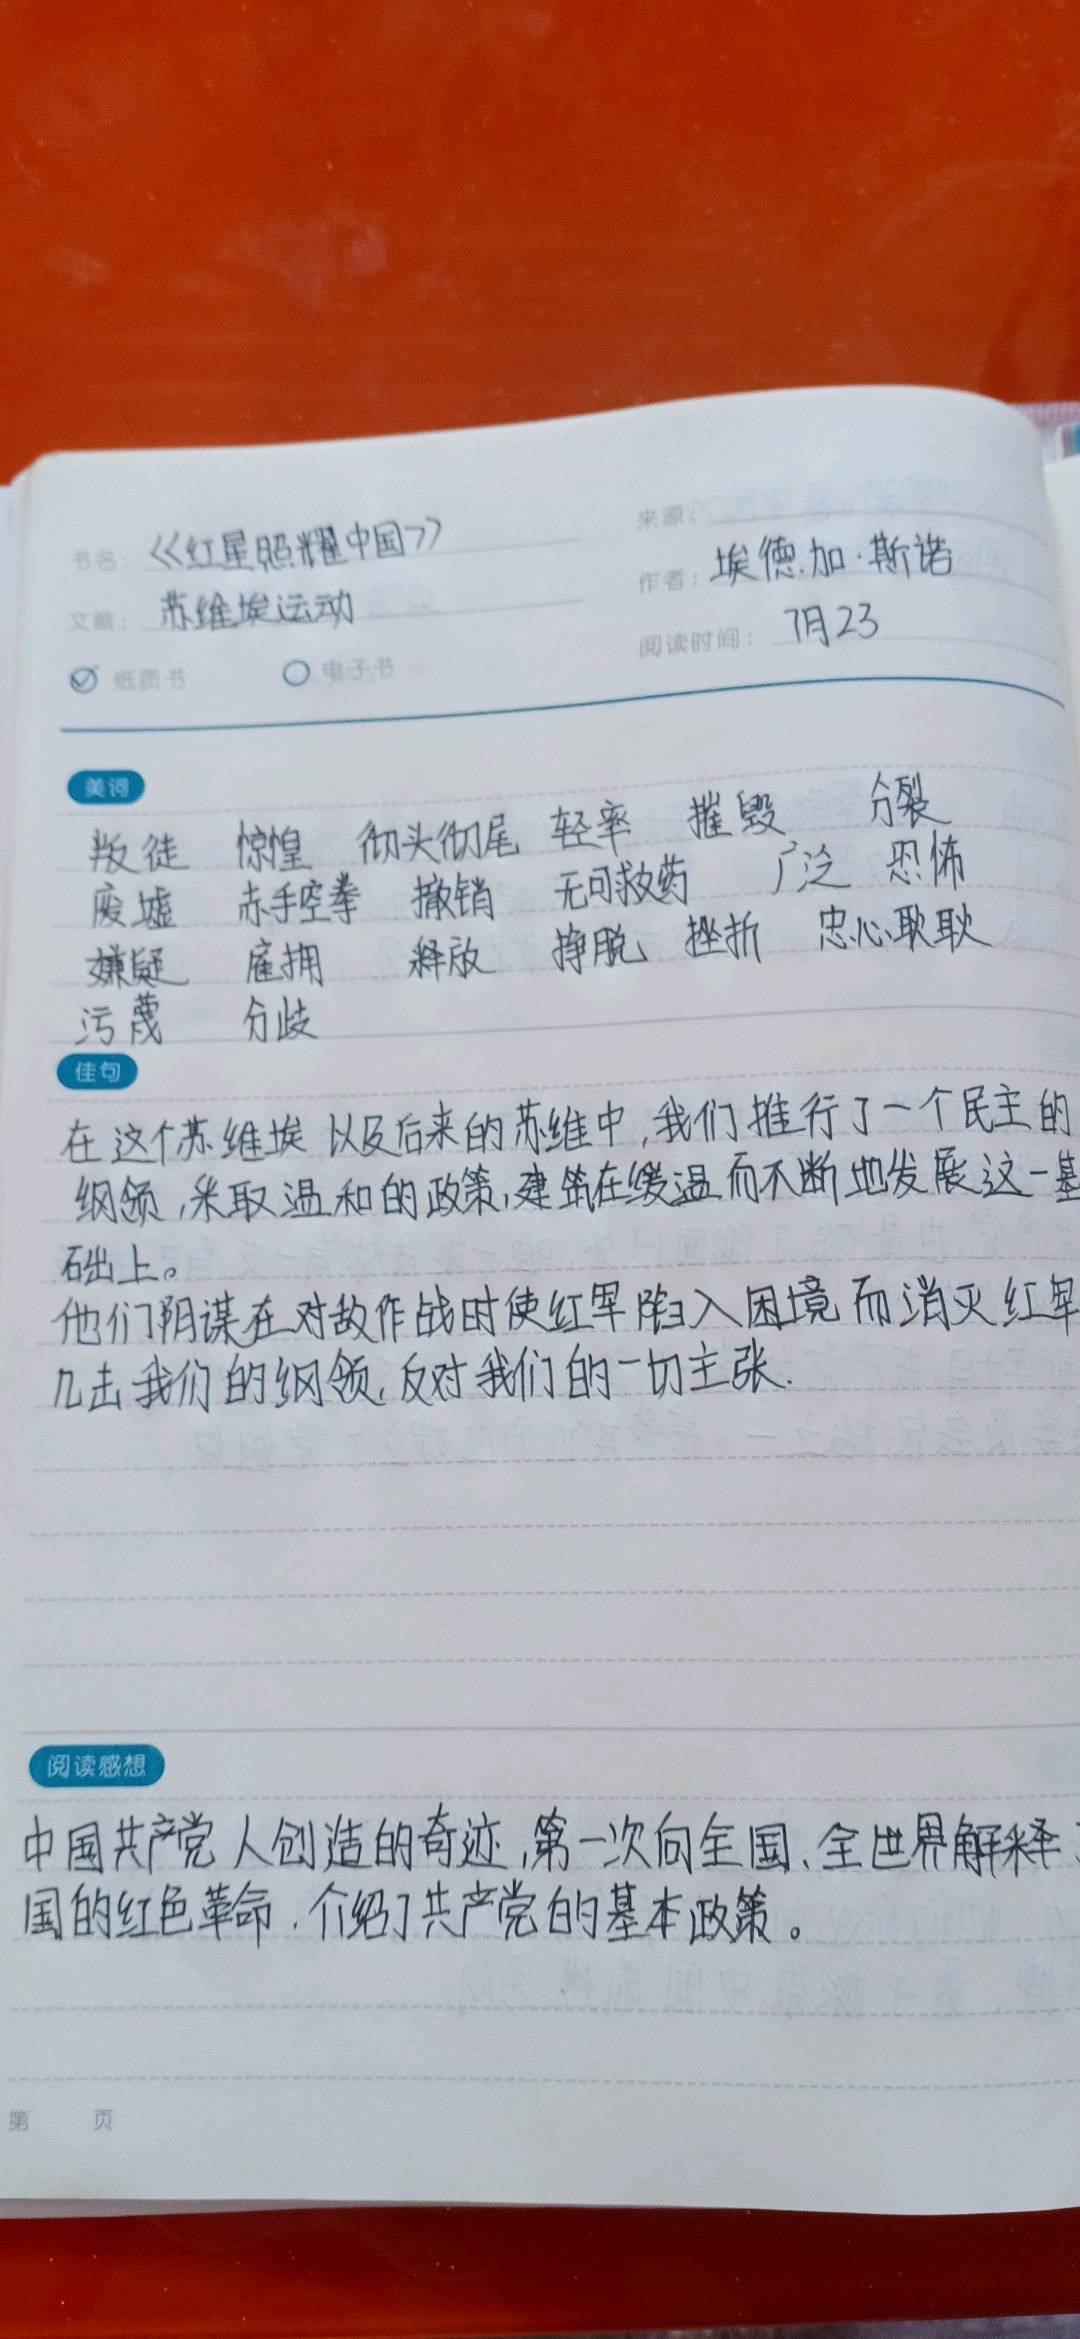 书名：《红星照耀中国》
来源：
文章：苏维埃运动
作者：埃德加·斯诺
纸质书 电子书
阅读时间：7月23
美词
叛徒 惊惶 彻头彻尾 轻率 摧毁 分裂
废墟 赤手空拳 撤销 无可救药 广泛 恐怖
嫌疑 雇拥 释放 挣脱 挫折 忠心耿耿
污蔑 分歧
佳句
在这个苏维埃以及后来的苏维中,我们推行了一个民主的
纲领,采取温和的政策,建筑在缓温而不断地发展这一基
础上。
他们阴谋在对敌作战时使红军陷入困境而消灭红军
几击我们的纲领,反对我们的一切主张.
阅读感想
中国共产党人创造的奇迹,第一次向全国、全世界解释
国的红色革命,介绍了共产党的基本政策。
第 页